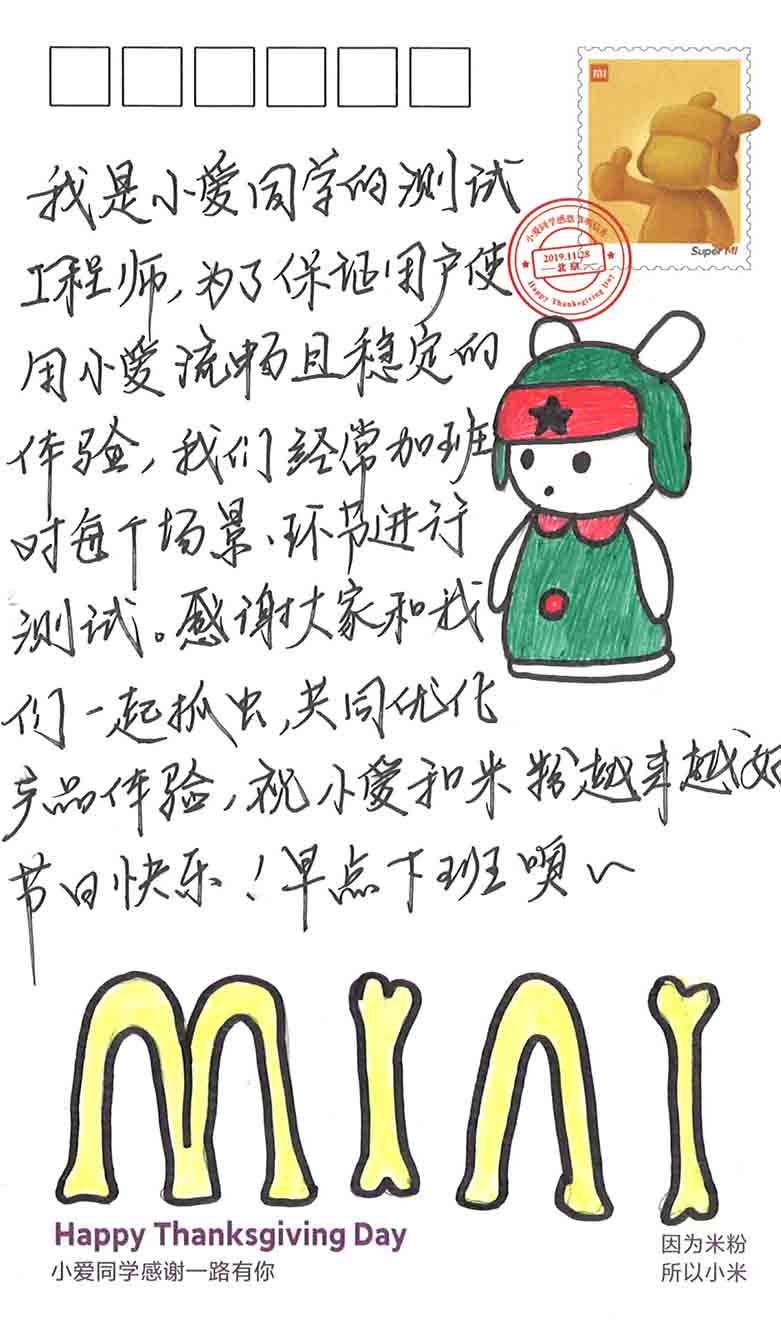 MI
Super MI
小爱同学感恩节明信片
2019.11.28
北京
Happy Thanksgiving Day
我是小爱同学的测试
工程师,为了保证用户使
用小爱流畅且稳定的
体验,我们经常加班
对每个场景、环节进行
测试。感谢大家和我
们一起抓虫,共同优化
产品体验,祝小爱和米粉越来越好
节日快乐!早点下班呗~
MINI
Happy Thanksgiving Day
小爱同学感谢一路有你
因为米粉
所以小米